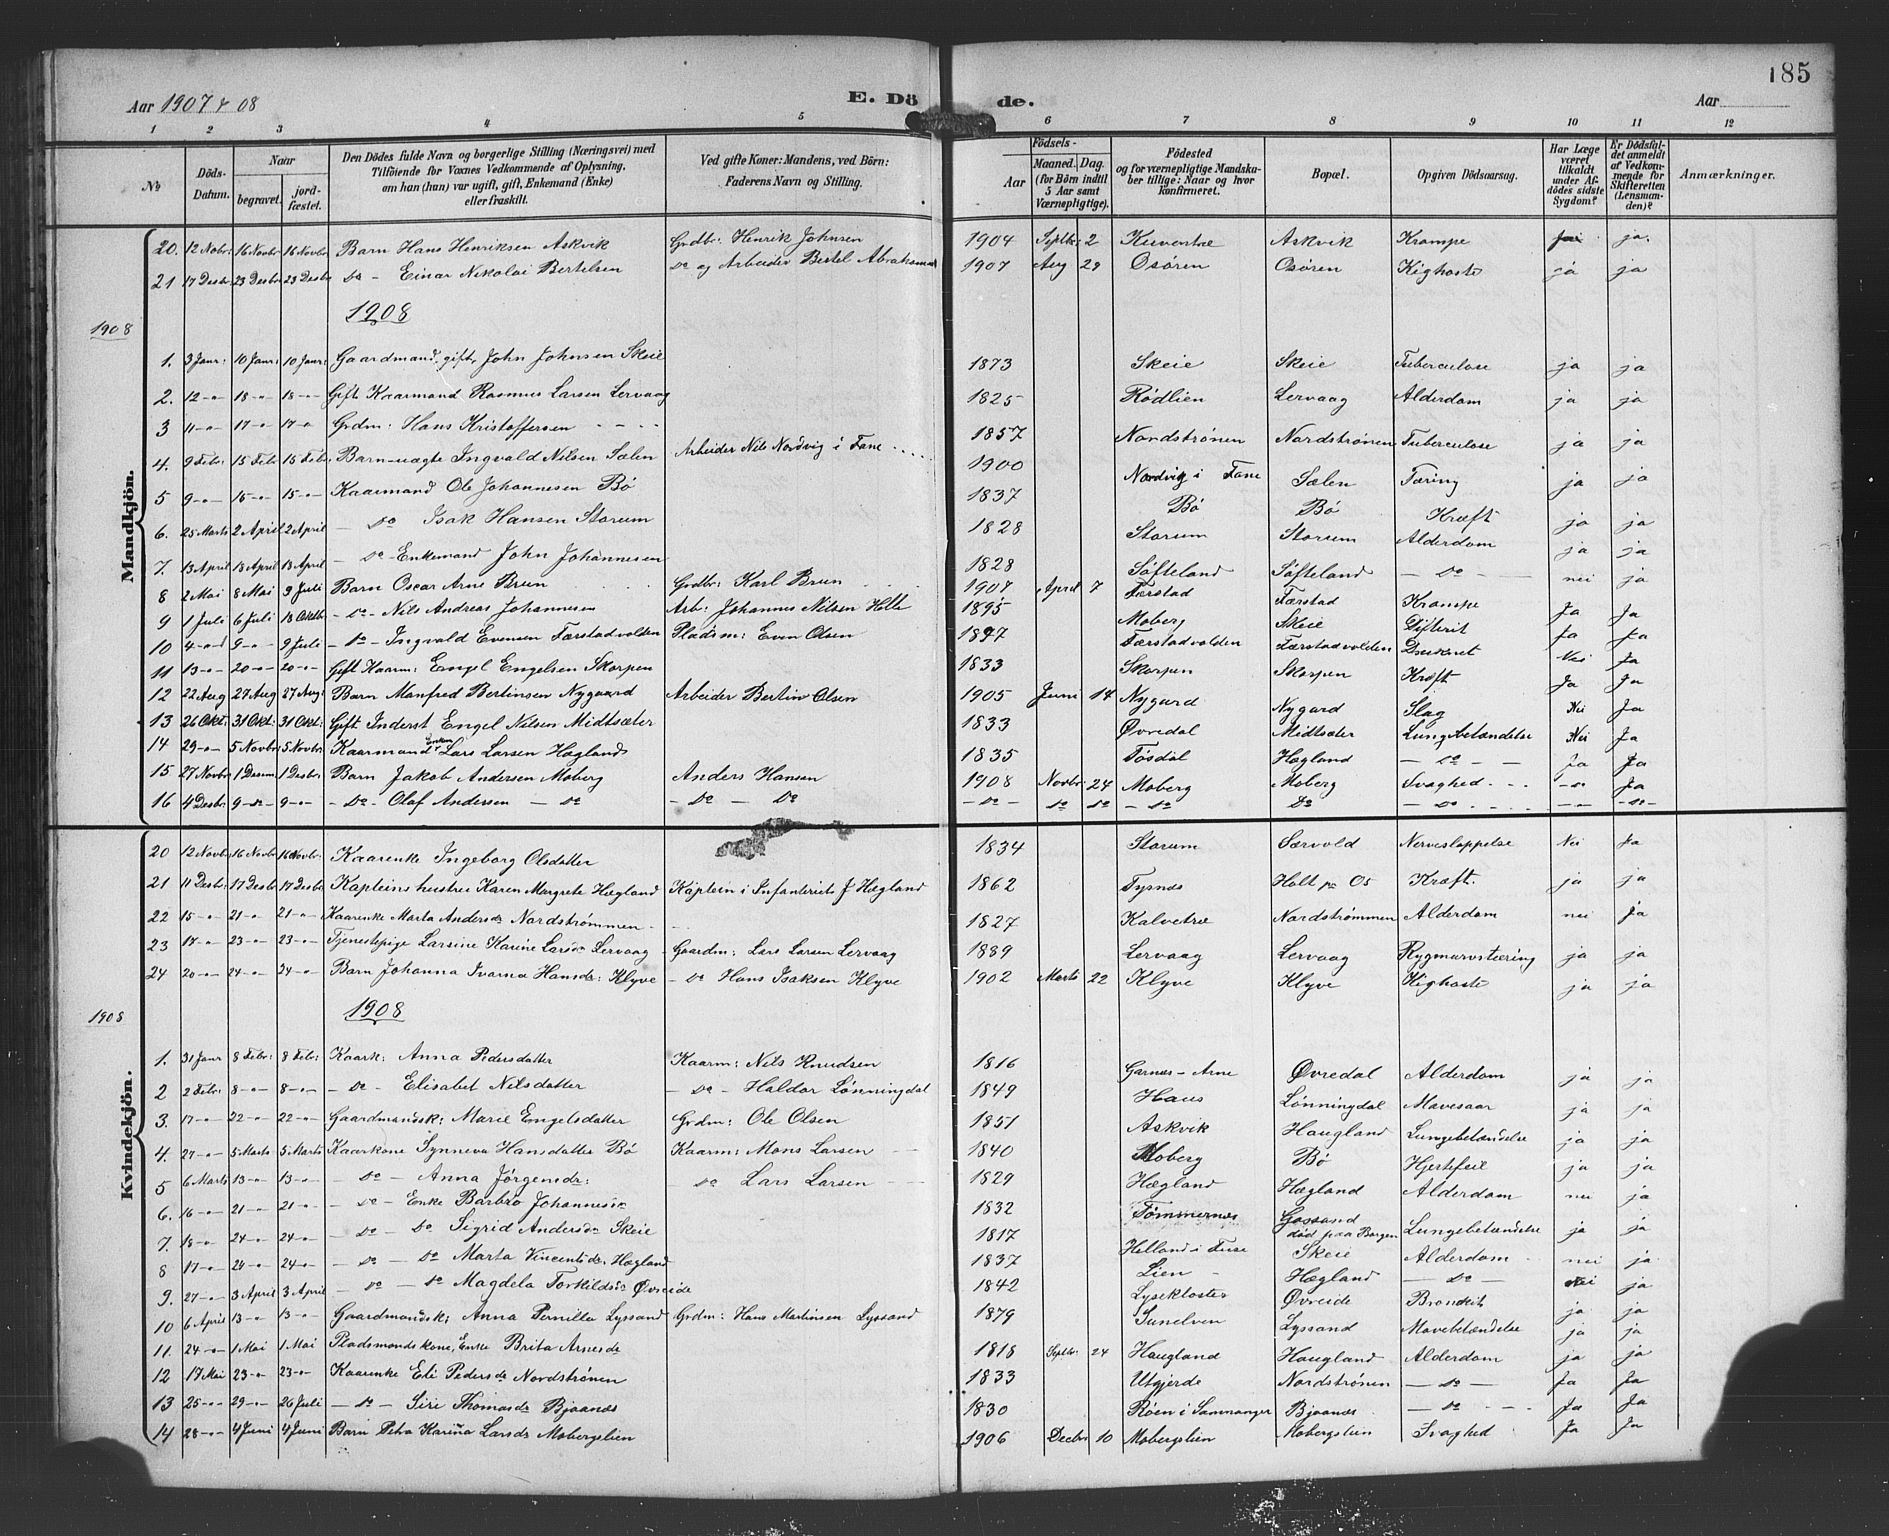 185
Aar 1907 & 08 E. Dö de. Aar
1 2 3 4 5 6 7 8 9 10 11 12
No Döds-Datum. Naar begravet. jord-fæstet. Den Dödes fulde Navn og borgerlige Stilling (Næringsvei) med Tilföiende for Voxnes Vedkommende af Oplysning, om han (hun) var ugift, gift, Enkemand (Enke) eller fraskilt. Ved gifte Koner: Mandens, ved Börn: Faderens Navn og Stilling. Födsels- Aar Maaned. Dag. (for Börn indtil 5 Aar samt Værnepligtige). Födested og for værnepligtige Mandskaber tillige: Naar og hvor konfirmeret. Bopæl. Opgiven Dödsaarsag. Har Læge været tilkaldt under Afdödes sidste Sygdom? Er Dödsfaldet anmeldt af Vedkommende for Skifteretten (Lensmanden)? Anmærkninger.
Mandkjön.
20. 12 Novbr: 16 Novbr 16 Novbr Barn Hans Henriksen Askvik Grdbr: Henrik Johnsen 1904 Septbr: 2 Kuventræ Askvik Krampe ja ja
21 17 Desbr 23 Desbr 23 Desbr Do - Einar Nikolai Bertelsen Do og Arbeider Bertel Abrahamsen 1907 Aug 29 Osören Osören Kighoste ja ja
1908
1908
1. 3 Janr: 10 Janr: 10 Janr: Gaardmand, gift, John Johnsen Skeie 1873 Skeie Skeie Tuberculose ja ja
2. 12 -"- 18 -"- 18 -"- Gift Kaarmand Rasmus Larsen Lervaag 1825 Rødlien Lervaag Alderdom ja ja
3 11 -"- 17 -"- 17 -"- Grdm: Hans Kristoffersen 1857 Nordstrønen Nordstrønen Tuberculose ja ja
4. 9 Febr: 15 Febr 15 Febr: Barn-uægte Ingvald Nilsen Sælen Arbeider Nils Nordvig i Fane 1900 Nordvig i Fane Sælen Tæring ja ja
5 9 -"- 15 -"- 15 -"- Kaarmand Ole Johannesen Bø 1837 Bø Bø Kræft ja ja
6. 25 Marts 2 April 2 April - Do Isak Hansen Storum 1828 Storum Storum Alderdom ja ja
7. 13 April 18 April 18 April - Do Enkemand John Johannesen 1828 Søfteland Søfteland - Do - nei ja
8 2 Mai 8 Mai 9 Juli Barn Oscar Arne Brun Grdbr: Karl Brun 1907 April 7 Færstad Færstad Krampe Ja Ja
9 1 Juli 6 Juli 18 Oktb - Do - Nils Andreas Johannesen Arb: Johannes Nilsen 1895 Moberg Skeie Difterit Ja Ja
10 4 9 -"- 9 Juli - Do - Ingvald Evensen Færstadvolden Pladsm: Even Olsen 1897 Færstadvolden Færstadvolden Druknet Nei Ja
11 13 -"- 20 -"- 20 -"- Gift Kaarm: Engel Engelsen Skorpen 1833 Skorpen Skorpen Kræft Ja Ja
12 22 Aug 27 Aug 27 Aug: Barn Manfred Bertinsen Nygaard Arbeider Bertin Olsen 1905 Juni 14 Nygard Nygard Slag Nei Ja
13 26 Okt. 31 Okt: 31 Okt: Gift Inderst Engel Nilsen Midtsæter 1833 Øvredal Midtsæter Lungebetændelse Nei Ja
14 29 -"- 5 Novbr 5 Novbr Kaarmand Enkem Lars Larsen Hægland 1835 Tøsdal Hægland - Do - Ja Ja
15 27 Novbr 1 Desem 1 Desbr Barn Jakob Andersen Moberg Anders Hansen 1908 Novbr: 24 Moberg Moberg Svaghed -"- Ja
16 4 Desbr 9 -Do- 9 -"- - Do - Olaf Andersen - Do - Do - Do - Do - Do Do - Do Do - Do -"- - Do -
Kvindekjön.
20 12 Novbr 16 Novbr 16 Novbr: Kaarenke Ingeborg Olsdatter 1834 Storum Særvold Nerveslappelse Nei Ja
21 11 Desbr 17 Desb 17 Desb Kapteins hustru Karen Margrete Hægland Kaptein i Infanteriet J Hægland 1862 Tysnes Holt pr Os Kræft. ja ja
22 15 -"- 21 -"- 21 -"- Kaarenke Marta Andersdr Nordstrømmen 1827 Kalvetræ Nordstrømmen Alderdom nei ja
23 17 -"- 23 -"- 23 -"- Tjenestepige Larsine Karine Larsdr Lervaag Gaardm: Lars Larsen Lervaag 1889 Lervaag Lervaag Rygmarvstæring ja ja
24 20 -"- 24 -"- 24 -"- Barn Johanna Ivarna Hansdr: Klyve - Do Hans Isaksen Klyve 1902 Marts 22 Klyve Klyve Kighoste ja ja
1908
1908
1. 31 Janr 8 Febr: 8 Febr: Kaark: Anna Pedersdatter Kaarm: Nils Knudsen 1816 Garnes-Arne Øvredal Alderdom ja ja
2 2 Febr: 8 -"- 8 -"- - Do - Elisabet Nilsdatter - Do - Haldor Lønningdal 1849 Haus Lønningdal Mavesaar ja ja
3. 17 -"- 22 -"- 22 -"- Gaardmandsk: Marie Engelsdatter Grdm: Ole Olsen 1851 Askvik Haugland Lungebetændelse ja ja
4. 27 -"- 5 Marts 5 Marts Kaarkone Synneva Hansdatter Bø Kaarm: Mons Larsen 1840 Moberg Bø Hjertefeil ja ja
5 6 Marts 13 -"- 13 -"- - Do - Anna Jørgensdr: Do Lars Larsen 1829 Hægland Hægland Alderdom nei ja
6. 16 -"- 21 -"- 21 -"- - Do - Enke Barbro Johannesdr 1832 Tømmernes Gassand død paa Borgen Lungebetændelse ja ja
7. 18 -"- 24 -"- 24 -"- - Do - Do Sigrid Andersdr Skeie 1817 Helland i Fuse Skeie Alderdom nei ja
8 17 -"- 24 -"- 24 -"- - Do - Do Marta Vincentsdr Hægland 1837 Lien Hægland - Do - nei ja
9. 27 -"- 3 April 3 April Do - Do Magdela Torkildsdr Øvreide 1842 Lysekloster Øvreide Bronkit ja ja
10 6 April 13 -"- 13 -"- Gaardmandsk; Anna Pernilla Lyssand Grdm: Hans Martinsen Lyssand 1879 Sunelven Lyssand Mavebetændelse ja ja
11. 24 -"- 1 Mai 1 Mai Pladsmandskone, Enke Brita Arnesdr 1818 Septbr. 24 Haugland Haugland Alderdom ja ja
12 17 Mai 23 -"- 23 -"- Kaarenke Eli Pedersdr Nordstrønen 1833 Utgjerde Nordstrønen - Do - Ja Ja
13 25 -"- 29 -"- 26 Juli - Do - Siri Thomasdr Bjaanæs 1830 Røen i Sammanger Bjaanæs - Do - Ja Ja
14 28 -"- 4 Juni 4 Juni Barn Petra Karina Larsdr Mobergslien 1906 Decbr 10 Mobergslien Mobergslien Svaghed Ja Ja